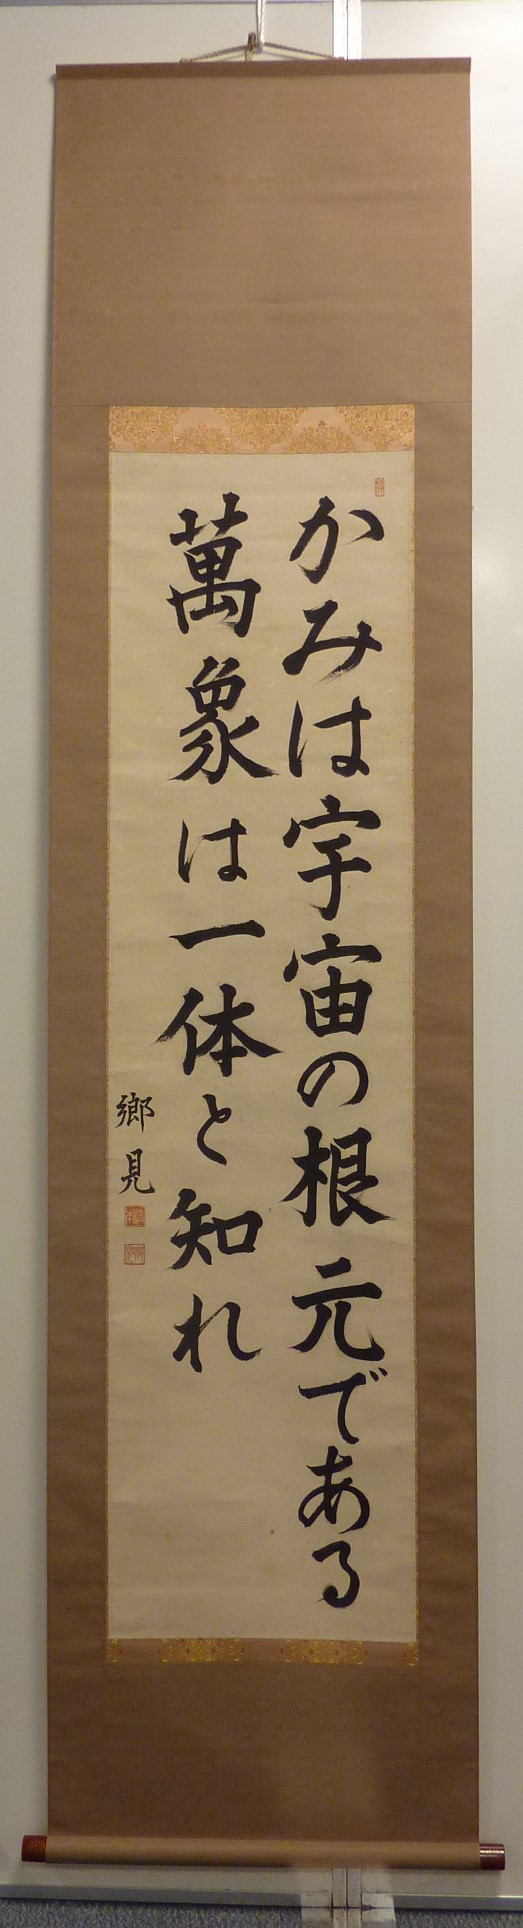 かみは宇宙の根元である
萬象は一体と知れ
鄉見